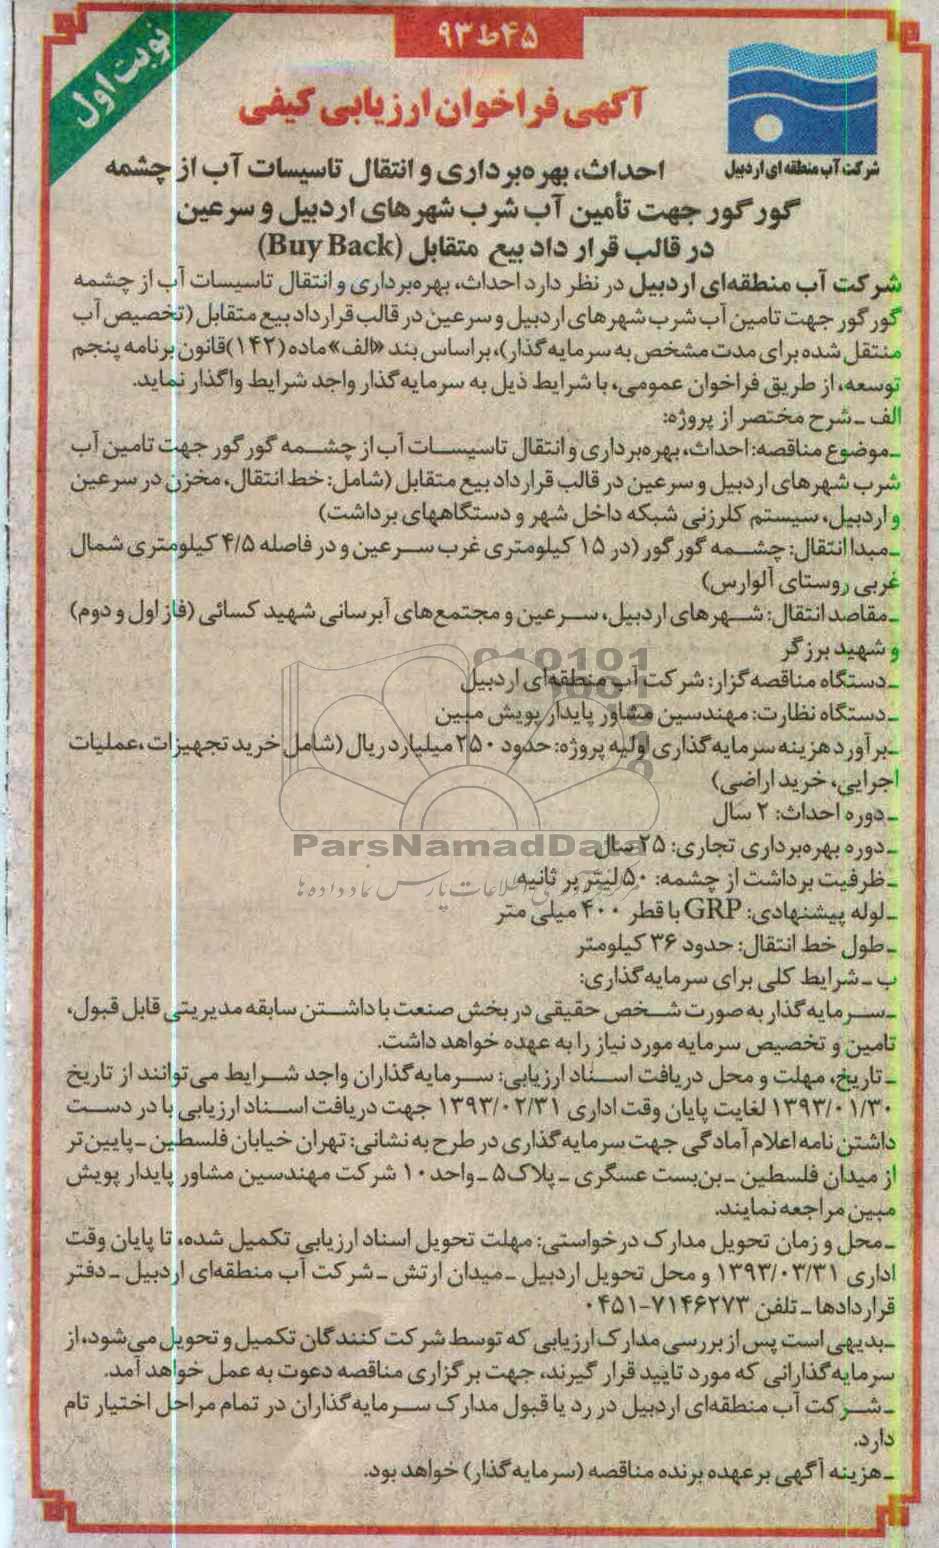 ۴۵ط۹۳
نوبت اول
آگهی فراخوان ارزیابی کیفی
شرکت آب منطقه ای اردبیل
احداث، بهره‌برداری و انتقال تاسیسات آب از چشمه
گورگور جهت تأمین آب شرب شهرهای اردبیل و سرعین
در قالب قرار داد بیع متقابل (Buy Back)
شرکت آب منطقه‌ای اردبیل در نظر دارد احداث، بهره‌برداری و انتقال تاسیسات آب از چشمه
گورگور جهت تامین آب شرب شهرهای اردبیل و سرعین در قالب قرارداد بیع متقابل (تخصیص آب
منتقل شده برای مدت مشخص به سرمایه‌گذار)، براساس بند «الف» ماده (۱۴۲) قانون برنامه پنجم
توسعه، از طریق فراخوان عمومی، با شرایط ذیل به سرمایه‌گذار واجد شرایط واگذار نماید.
الف ـ شرح مختصر از پروژه:
ـ موضوع مناقصه: احداث، بهره‌برداری و انتقال تاسیسات آب از چشمه گورگور جهت تامین آب
شرب شهرهای اردبیل و سرعین در قالب قرارداد بیع متقابل (شامل: خط انتقال، مخزن در سرعین
و اردبیل، سیستم کلرزنی شبکه داخل شهر و دستگاههای برداشت)
ـ مبدا انتقال: چشمه گورگور (در ۱۵ کیلومتری غرب سرعین و در فاصله ۴/۵ کیلومتری شمال
غربی روستای آلوارس)
ـ مقاصد انتقال: شهرهای اردبیل، سرعین و مجتمع‌های آبرسانی شهید کسائی (فاز اول و دوم)
و شهید برزگر
ـ دستگاه مناقصه‌گزار: شرکت آب منطقه‌ای اردبیل
ـ دستگاه نظارت: مهندسین مشاور پایدار پویش مبین
ـ برآورد هزینه سرمایه‌گذاری اولیه پروژه: حدود ۲۵۰ میلیارد ریال (شامل خرید تجهیزات، عملیات
اجرایی، خرید اراضی)
ـ دوره احداث: ۲ سال
ـ دوره بهره‌برداری تجاری: ۲۵ سال
ParsNamadData
ـ ظرفیت برداشت از چشمه: ۵۰ لیتر بر ثانیه
ـ لوله پیشنهادی: GRP با قطر ۴۰۰ میلی متر
ـ طول خط انتقال: حدود ۳۶ کیلومتر
ب ـ شرایط کلی برای سرمایه‌گذاری:
ـ سرمایه‌گذار به صورت شخص حقیقی در بخش صنعت با داشتن سابقه مدیریتی قابل قبول،
تامین و تخصیص سرمایه مورد نیاز را به عهده خواهد داشت.
ـ تاریخ، مهلت و محل دریافت اسناد ارزیابی: سرمایه‌گذاران واجد شرایط می‌توانند از تاریخ
۱۳۹۳/۰۱/۳۰ لغایت پایان وقت اداری ۱۳۹۳/۰۲/۳۱ جهت دریافت اسناد ارزیابی با در دست
داشتن نامه اعلام آمادگی جهت سرمایه‌گذاری در طرح به نشانی: تهران خیابان فلسطین ـ پایین‌تر
از میدان فلسطین ـ بن‌بست عسگری ـ پلاک۵ ـ واحد۱۰ شرکت مهندسین مشاور پایدار پویش
مبین مراجعه نمایند.
ـ محل و زمان تحویل مدارک درخواستی: مهلت تحویل اسناد ارزیابی تکمیل شده، تا پایان وقت
اداری ۱۳۹۳/۰۳/۳۱ و محل تحویل اردبیل ـ میدان ارتش ـ شرکت آب منطقه‌ای اردبیل ـ دفتر
قراردادها ـ تلفن ۷۱۴۶۲۷۳-۰۴۵۱
ـ بدیهی است پس از بررسی مدارک ارزیابی که توسط شرکت کنندگان تکمیل و تحویل می‌شود، از
سرمایه‌گذارانی که مورد تایید قرار گیرند، جهت برگزاری مناقصه دعوت به عمل خواهد آمد.
ـ شرکت آب منطقه‌ای اردبیل در رد یا قبول مدارک سرمایه‌گذاران در تمام مراحل اختیار تام
دارد.
ـ هزینه آگهی برعهده برنده مناقصه (سرمایه‌گذار) خواهد بود.